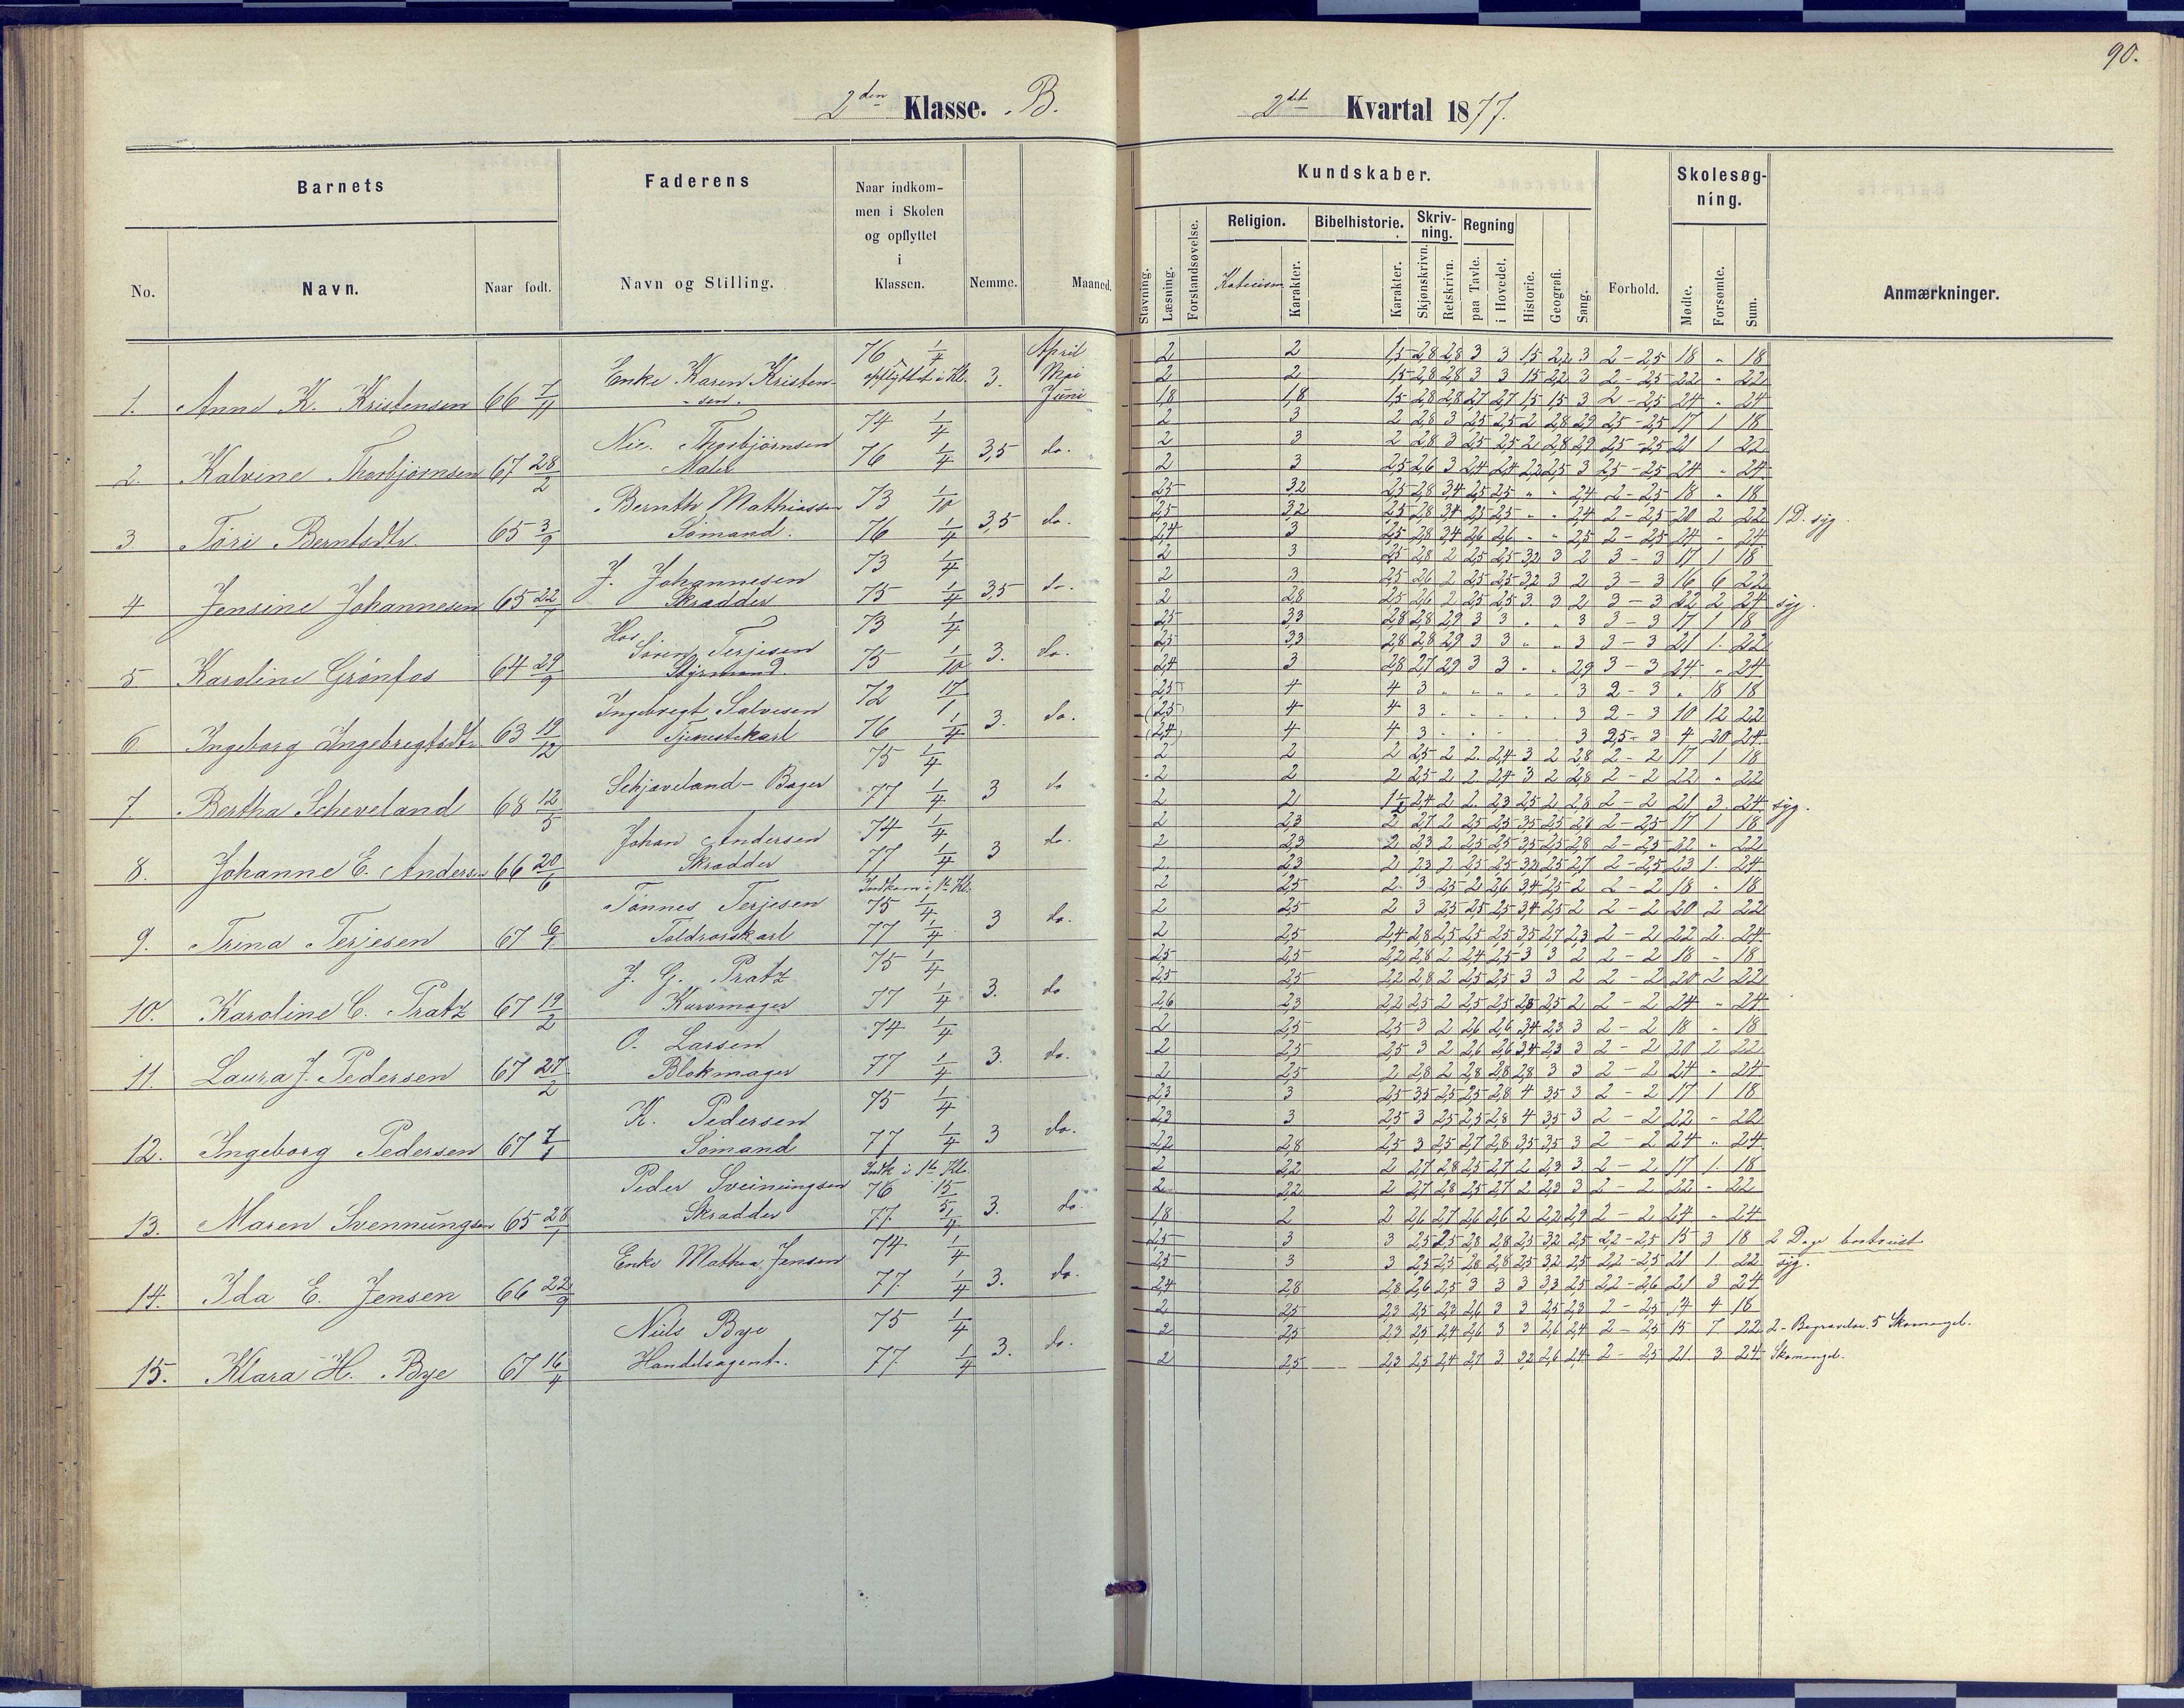 90.
2den Klasse. B.
2det Kvartal 1877.
Barnets
Faderens
Naar indkom-
men i Skolen
og opflyttet
i
Klassen.
No.
Navn.
Naar født.
Navn og Stilling.
Nemme.
Maaned.
Kundskaber.
Skolesøg-
ning.
Religion.
Bibelhistorie.
Skriv-
ning.
Regning
Stavning.
Læsning.
Forstandsøvelse.
Katecism
Karakter.
Karakter.
Skjønskrivn.
Retskrivn.
paa Tavle.
i Hovedet.
Historie.
Geografi.
Sang.
Forhold.
Mødte.
Forsømte.
Sum.
Anmærkninger.
1. Anne K. Kristensen 66 7/11 Enke Karen Kristen-
sen. 76 1/4 opflyttet i Kl. 3. April
Mai
Juni
2 2 1,5 2,8 2,8 3 3 1,5 2,2 3 2 - 2,5 18 " 18
2 2 1,5 2,8 2,8 3 3 1,5 2,2 3 2 - 2,5 22 " 22
1,8 1,8 1,5 2,8 2,8 2,7 2,7 1,5 1,5 3 2 - 2,5 24 " 24
2. Kalvine Thorbjørnsen 67 28/2 Nic. Thorbjørnsen
Maler 74 1/4
76 1/4 3,5 do.
2 3 2 2,8 3 2,5 2,5 2 2,8 2,9 2,5 - 2,5 17 1 18
2 3 2 2,8 3 2,5 2,5 2 2,8 2,9 2,5 - 2,5 21 1 22
2 3 2,5 2,6 3 2,4 2,4 2,2 2,5 3 2,5 - 2,5 24 " 24
3 Tori Berntsdtr. 65 3/9 Bernth Mathiassen
Sømand. 73 1/10
76 1/4 3,5 do.
2,5 3,2 2,5 2,8 3,4 2,5 2,5 " " 2,4 2 - 2,5 18 " 18
2,5 3,2 2,5 2,8 3,4 2,5 2,5 " " 2,4 2 - 2,5 20 2 22 1 D. syg.
2,4 3 2,5 2,8 3,4 2,6 2,6 " " 2,5 2 - 2,5 24 " 24
4 Jensine Johannesen 65 22/7 J. Johannesen
Skrædder 73 1/4
75 1/4 3,5 do.
2 3 2,5 2,8 2 2,5 2,5 3,2 3 2 3 - 3 17 1 18
2 3 2,5 2,6 2 2,5 2,5 3,2 3 2 3 - 3 16 6 22
2 2,8 2,5 2,6 2 2,5 2,5 3 3 2 3 - 3 22 2 24 syg.
5 Karoline Grønfos 64 29/9 Hos
Søren Terjesen
Styrmand. 73 1/4
75 1/10 3. do.
2,5 3,3 2,8 2,8 2,9 3 3 " " 3 3 - 3 17 1 18
2,5 3,3 2,8 2,8 2,9 3 3 " " 3 3 - 3 21 1 22
2,4 3 2,8 2,7 2,9 3 3 " " 2,9 3 - 3 24 " 24
6 Ingeborg Ingebregtsdtr. 63 19/12 Ingebregt Salvesen
Tjenestekarl 72 17/1
76 1/4 3. do.
2,5 4 4 3 " " " " " 3 2 - 3 " 18 18
(2,5) 4 4 3 " " " " " 3 2 - 3 10 12 22
(2,4) 4 4 3 " " " " " 3 2,5 - 3 4 20 24
7. Bertha Scheveland 68 12/5 Schjaveland - Bager 75 1/4
77 1/4 3 do
2 2 2 2,5 2 2 2,4 3 2 2,8 2 - 2 17 1 18
2 2 2 2,5 2 2 2,4 3 2 2,8 2 - 2 22 " 22
2 2 1½ 2,4 2 2 2,3 2,5 2 2,8 2 - 2 21 3 24 syg.
8. Johanne E. Andersen 66 20/6 Johan Andersen
Skrædder 74 1/4
77 1/4 3 do.
2 2,3 2 2,7 2 2,5 2,5 3,5 2,5 2,8 2 - 2,5 17 1 18
2 2,3 2 2,3 2 2,5 2,5 3,5 2,5 2,8 2 - 2,5 22 " 22
2 2,3 2 2,3 2 2,5 2,5 3,2 2,5 2,7 2 - 2,5 23 1 24
9. Trina Terjesen 67 6/1 Tønnes Terjesen
Toldrorskarl Indkom i 1te Kl.
75 1/4
77 1/4 3 do.
2 2,5 2 3 2,5 2 2,6 3,4 2,5 2 2 - 2 18 " 18
2 2,5 2 3 2,5 2,5 2,5 3,4 2,5 2 2 - 2 20 2 22
2 2,5 2,4 2,8 2,5 2,5 2,5 3,5 2,7 2,3 2 - 2 22 2 24
10. Karoline C. Pratz 67 19/2 J. G. Pratz
Kurvmager 75 1/4
77 1/4 3. do
2,5 2,5 2,2 2,8 2 2,4 2,5 3 3 2 2 - 2 18 " 18
2,5 2,5 2,2 2,8 2 2,5 2,5 3 3 2 2 - 2 20 2 22
2,6 2,3 2,2 2,5 2 2,5 2,5 2,8 2,5 2 2 - 2 24 " 24
11. Laura J. Pedersen 67 27/2 O. Larsen
Blokmager 74 1/4
77 1/4 3. do.
2 2,5 2,5 3 2 2,6 2,6 3,4 2,3 3 2 - 2 18 " 18
2 2,5 2,5 3 2 2,6 2,6 3,4 2,3 3 2 - 2 20 2 22
2 2,5 2 2,8 2 2,8 2,8 2,8 3 3 2 - 2 24 " 24
12. Ingeborg Pedersen 67 7/1 K. Pedersen
Sømand 75 1/4
77 1/4 3 do.
2,3 3 2,5 3,5 2,5 2,5 2,8 4 3,5 3 2 - 2 17 1 18
2,3 3 2,5 3 2,5 2,5 2,8 4 3,5 3 2 - 2 22 " 22
2,2 2,8 2,5 3 2,5 2,7 2,8 3,5 3,5 3 2 - 2 24 " 24
13. Maren Svennungsen 65 28/1 Peder Sveinungsen
Skrædder Indk i 1te Kl.
76 15/5
77. 1/4 3. do.
2 2,2 2 2,7 2,8 2,5 2,7 2 2,3 3 2 - 2 17 1 18
2 2,2 2 2,7 2,8 2,5 2,7 2 2,3 3 2 - 2 22 " 22
1,8 2 2 2,6 2,7 2,6 2,6 2 2,2 2,9 2 - 2 24 " 24
14. Ida E. Jensen 66 22/9 Enke Mathea Jensen 74 1/4
77. 1/4 3. do.
2,5 3 3 2,5 2,5 2,8 2,8 2,5 3,2 2,5 2,2 - 2,5 15 3 18 2 Dage bortreist
2,5 3 3 2,5 2,5 2,8 2,8 2,5 3,2 2,5 2,2 - 2,5 21 1 22 syg.
2,4 2,8 2,8 2,6 2,5 3 3 3 3,3 2,5 2,2 - 2,6 21 3 24
15. Klara H. Bye 67 16/4 Niels Bye
Handelsagent. 75 1/4
77. 1/4 3. do.
2 2,5 2,3 2,5 2,3 2,6 3 3 2,5 2,3 2 - 2,5 14 4 18
2 2,5 2,3 2,5 2,4 2,6 3 3 2,6 2,4 2 - 2,5 15 7 22 2 - Begravelse. 5 Skomangel.
2 2,5 2,3 2,5 2,4 2,7 3 3,2 2,6 2,4 2 - 2,5 21 3 24 Skomangel.